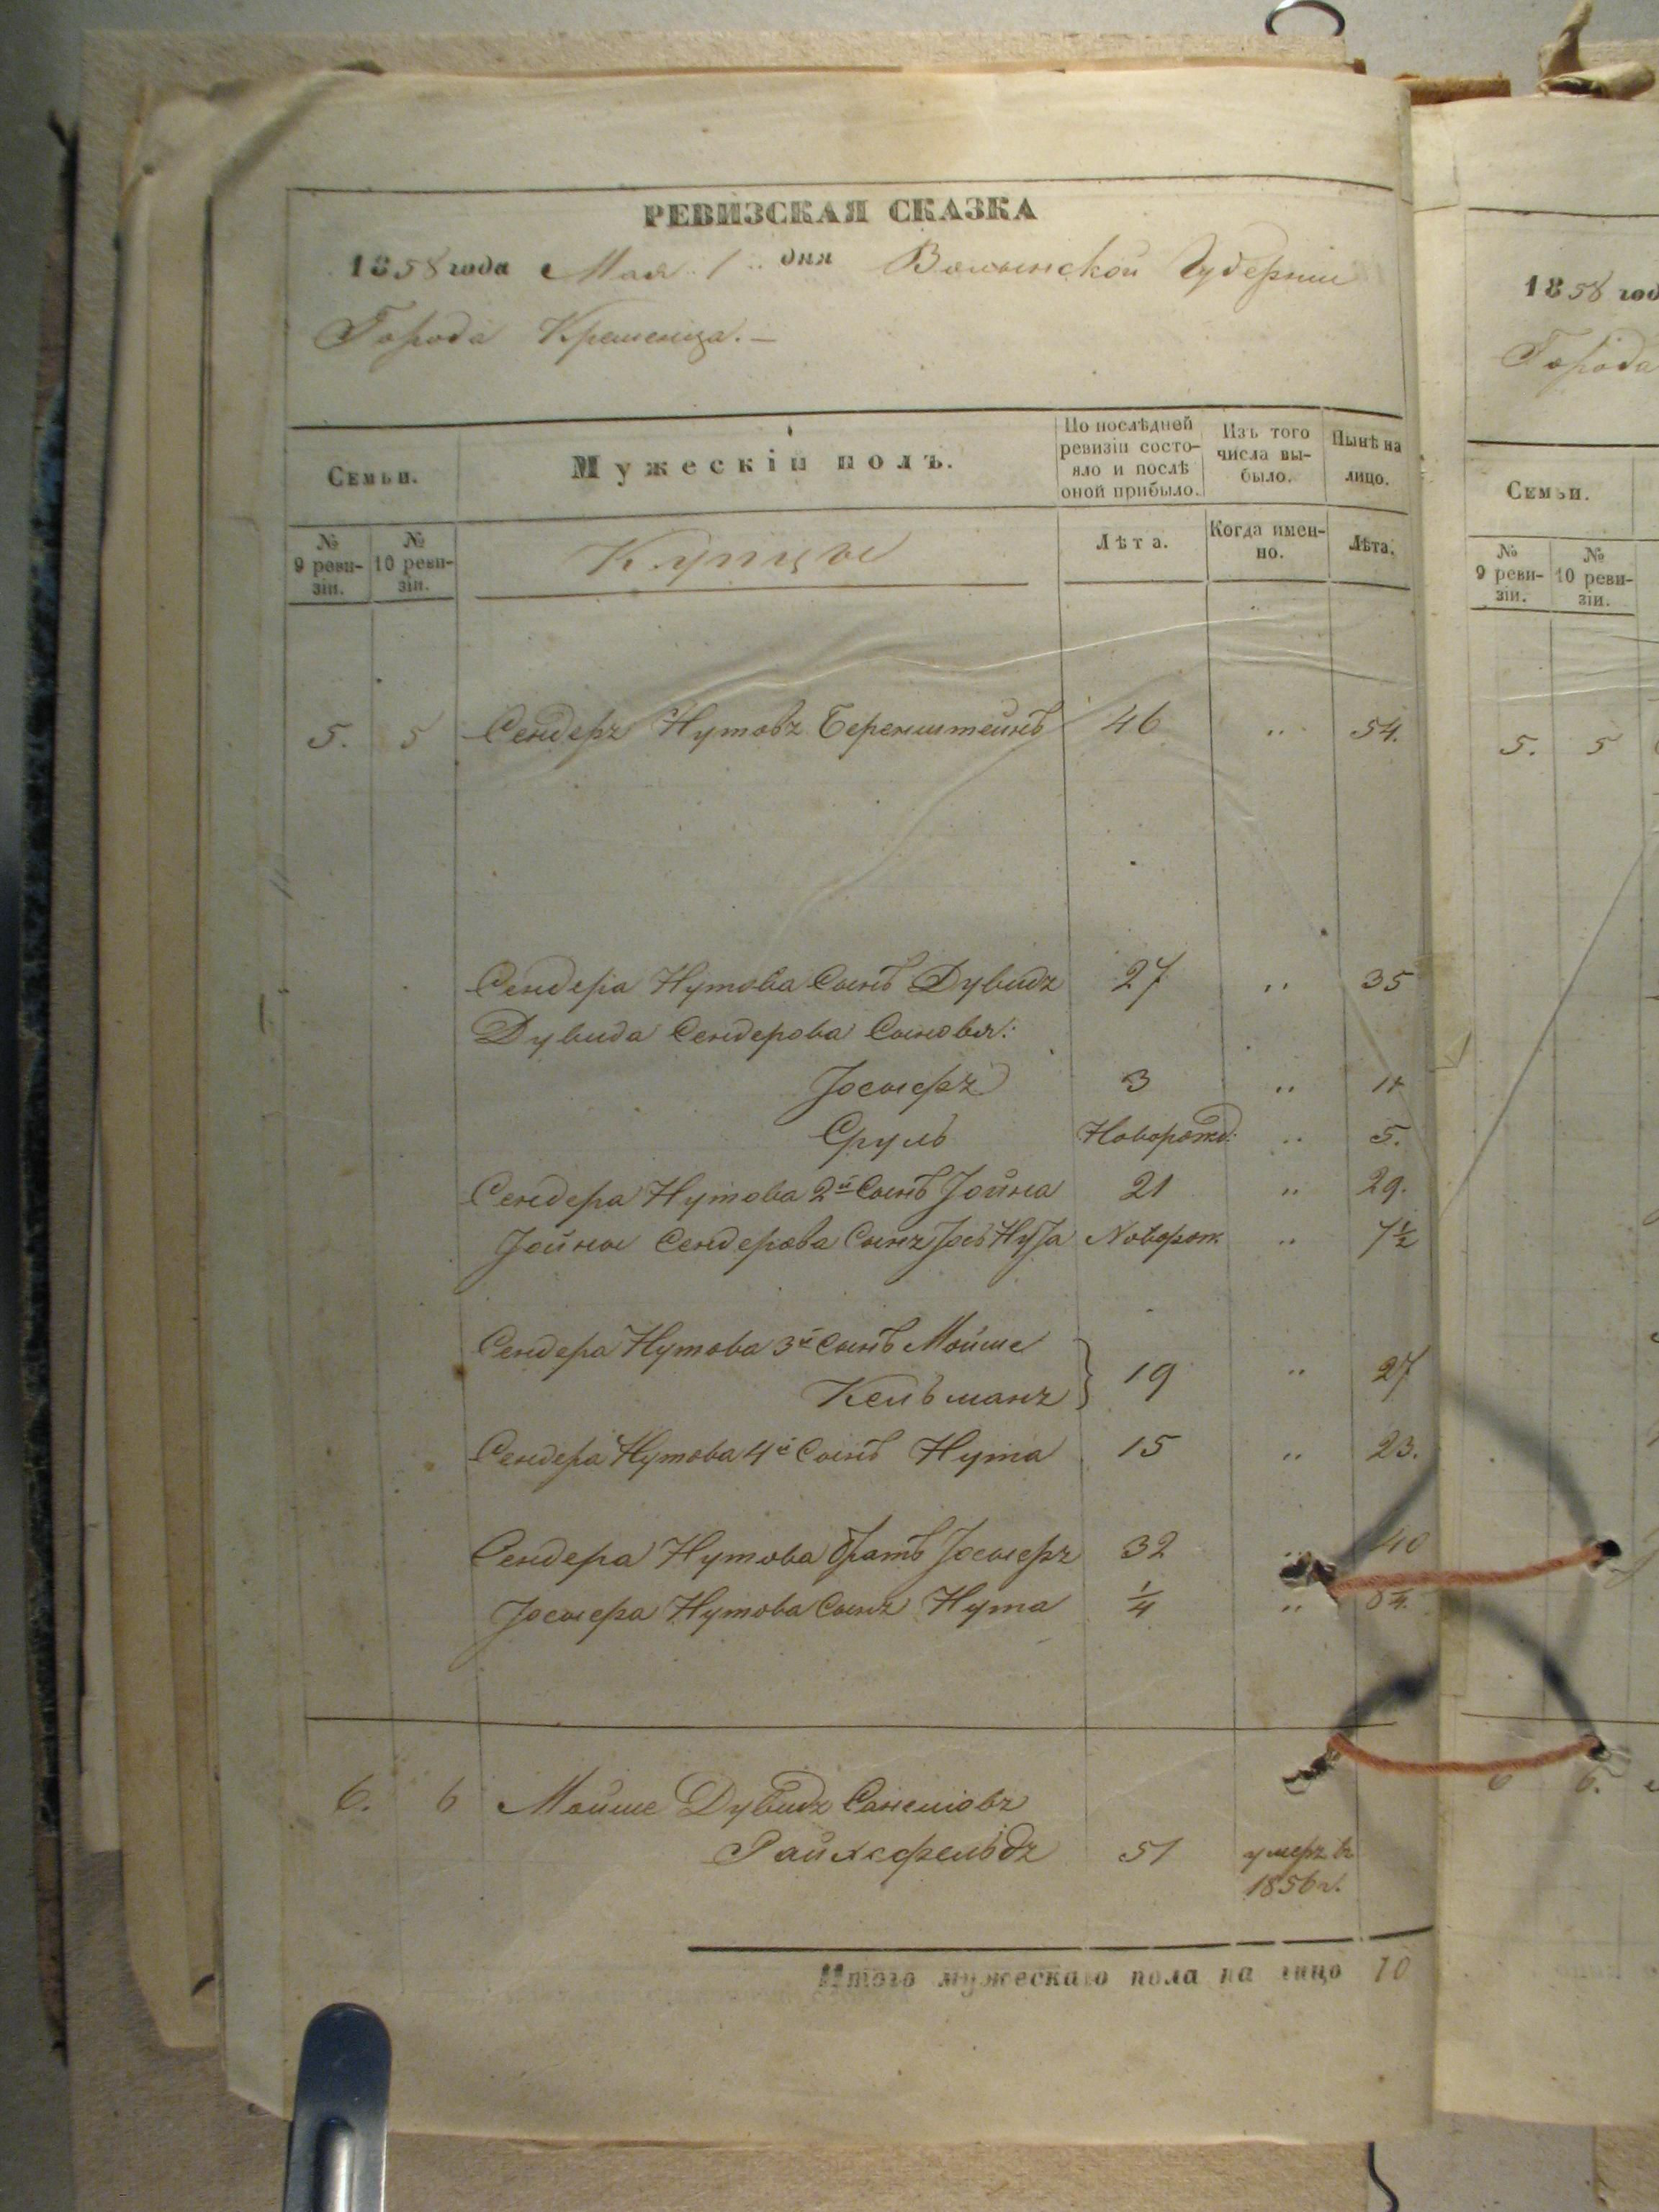 РЕВИЗСКАЯ СКАЗКА
1858 года Мая 1 .. дня Волынской Губернии
Города Кременца. —
Семьи.
Мужескій полъ.
По послѣдней ревизіи состояло и послѣ оной прибыло.
Изъ того числа выбыло.
Нынѣ на лицо.
№ 9 ревизіи.
№ 10 ревизіи.
Купцы
Лѣта.
Когда именно.
Лѣта.
5. 5 Сендеръ Нутовъ Беренштейнъ 46 .. 54.
Сендера Нутова Сынъ Дувидъ 27 .. 35
Дувида Сендерова Сыновья:
Іосыфъ 3 .. 11
Сруль Новорожд: .. 5.
Сендера Нутова 2й Сынъ Іойна 21 .. 29.
Іойны Сендерова Сынъ Новорож .. 7½
Сендера Нутова 3й Сынъ Мойше
Кельманъ 19 .. 27
Сендера Нутова 4й Сынъ Нута 15 .. 23.
Сендера Нутова братъ Іосыфъ 32 .. 40
Іосыфа Нутова Сынъ Нута ¼ ..
6. 6 Мойше Дувидъ
Райхфельдъ 51 умеръ въ
1856 г.
Итого мужескаго пола на лицо 10
1858 год
Города
Семьи.
№ 9 ревизіи.
№ 10 ревизіи.
5. 5
6 6.